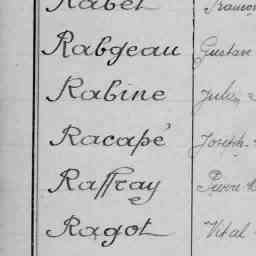 Rabel
Rabgeau Gustave
Rabine Jules
Racapé Joseph
Raffray Pierre
Ragot Vital